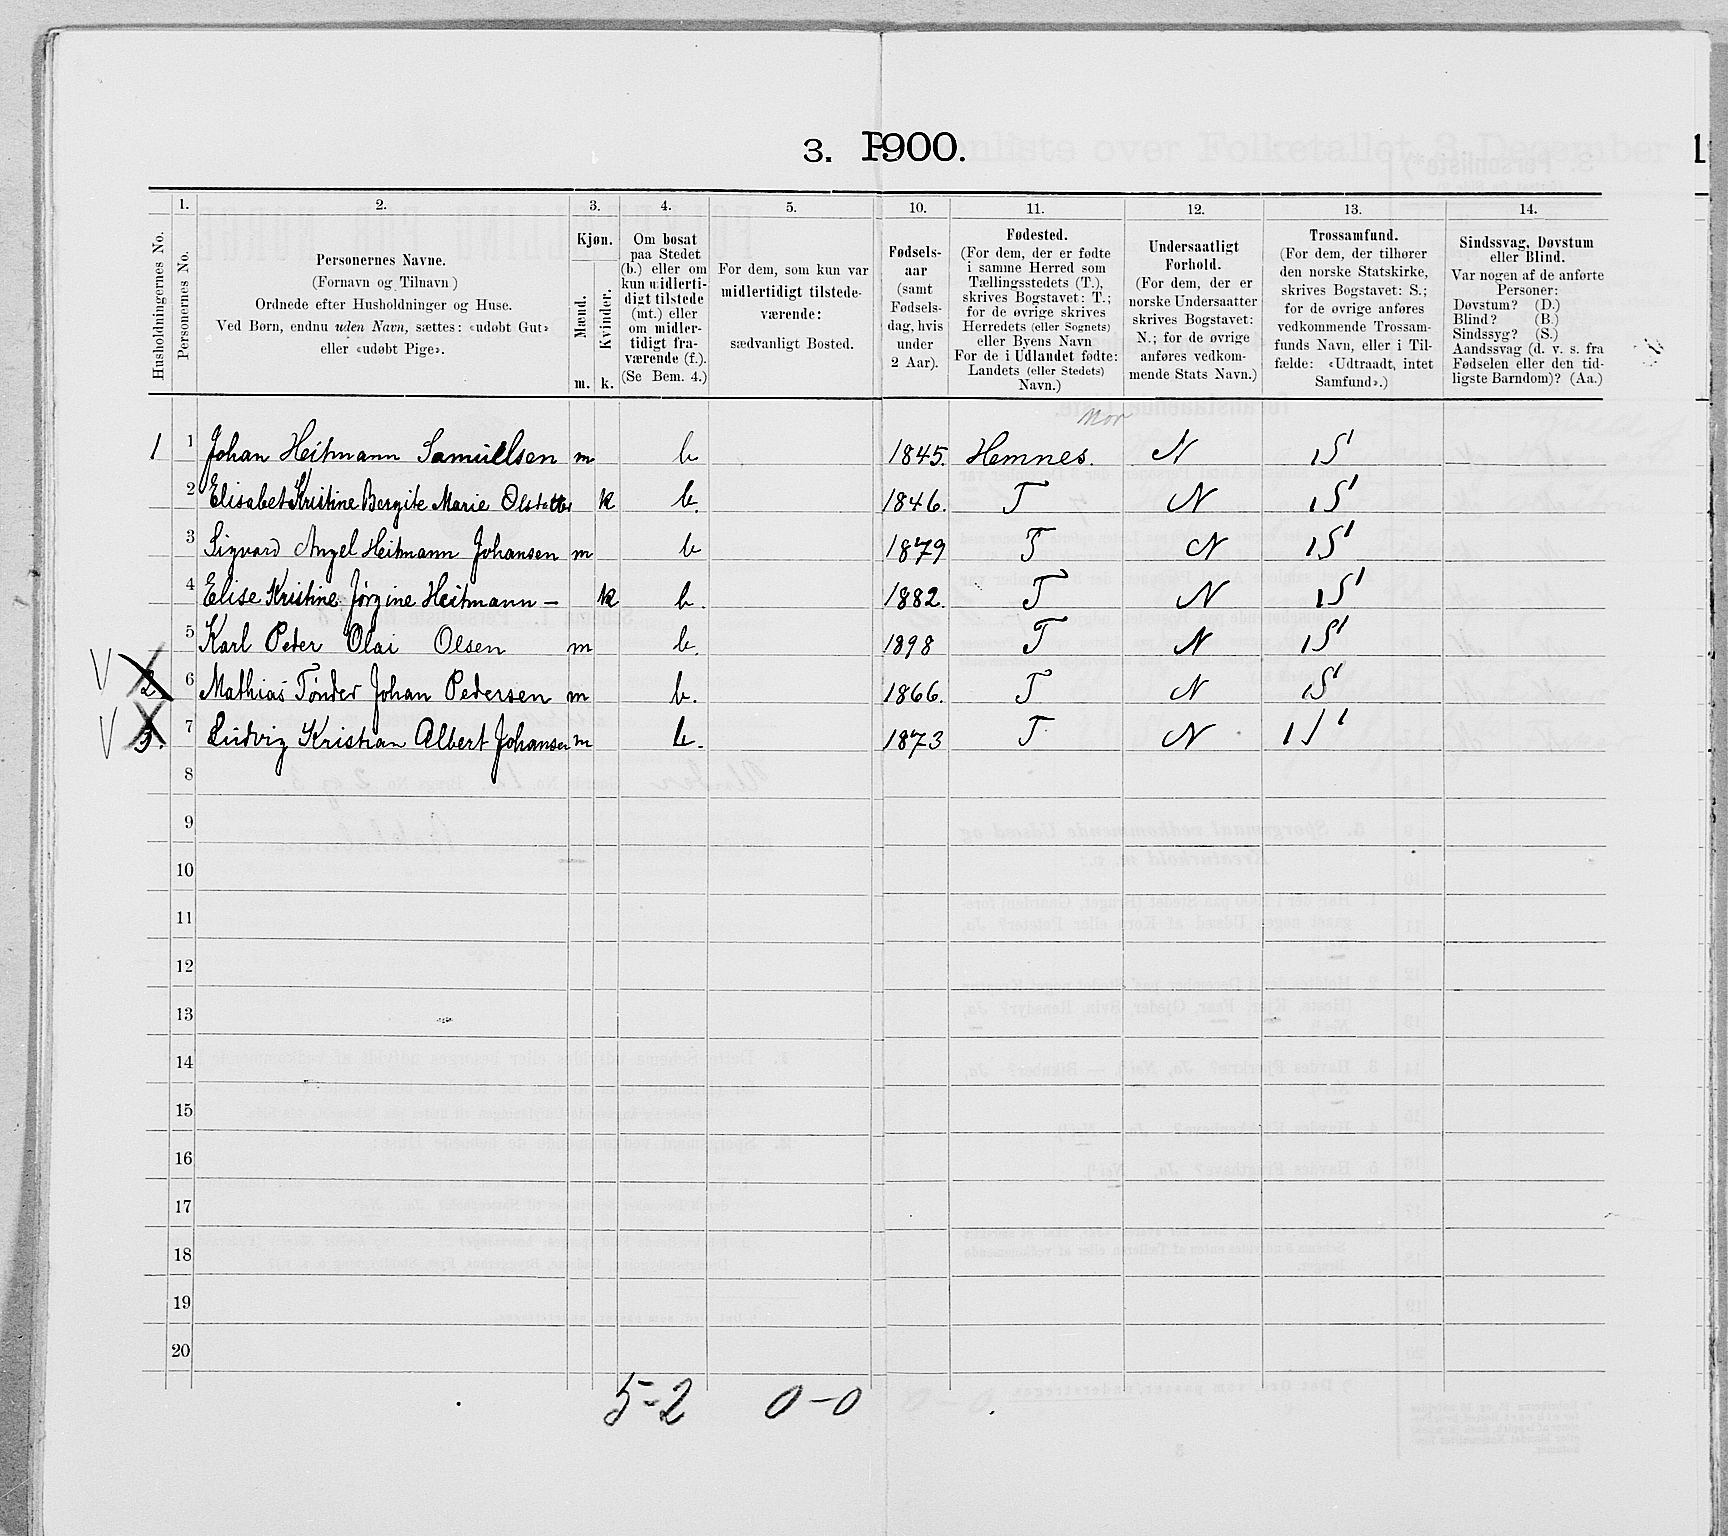 3. P900.
1.
2.
3.
4.
5.
10.
11.
12.
13.
14.
Husholdningernes No.
Personernes No.
Personernes Navne.
(Fornavn og Tilnavn)
Ordnede efter Husholdninger og Huse.
Ved Børn, endnu uden Navn, sættes: «udøbt Gut»
eller «udøbt Pige».
Kjøn.
Mænd.
Kvinder.
m.
k.
Om bosat
paa Stedet
(b.) eller om
kun midlerti-
digt tilstede
(mt.) eller
om midler-
tidigt fra-
værende (f.).
(Se Bem. 4.)
For dem, som kun var
midlertidigt tilstede-
værende:
sædvanligt Bosted.
Fødsels-
aar
(samt
Fødsels-
dag, hvis
under
2 Aar).
Fødested.
(For dem, der er fødte
i samme Herred som
Tællingsstedets (T.),
skrives Bogstavet: T.;
for de øvrige skrives
Herredets (eller Sognets)
eller Byens Navn
For de i Udlandet fødte:
Landets (eller Stedets)
Navn.)
Undersaatligt
Forhold.
(For dem, der er
norske Undersaatter
skrives Bogstavet:
N.; for de øvrige
anføres vedkom-
mende Stats Navn.)
Trossamfund.
(For dem, der tilhører
den norske Statskirke,
skrives Bogstavet: S.;
for de øvrige anføres
vedkommende Trossam-
funds Navn, eller i Til-
fælde: «Udtraadt, intet
Samfund».)
Sindssvag, Døvstum
eller Blind.
Var nogen af de anførte
Personer:
Døvstum? (D.)
Blind? (B.)
Sindssyg? (S.)
Aandssvag (d. v. s. fra
Fødselen eller den tid-
ligste Barndom)? (Aa.)
Mor
1 1 Johan Heitmann Samuelsen m b 1845. Hemnes. N S
2 Elisabet Kristine Bergite Marie k b. 1846. T N S
3 Sigvard Angel Heitmann Johansen m b 1879 T N S
4 Elise Kristine Jørgine Heitmann – k b. 1882. T N S
5 Karl Peder Olai Olsen m b. 1898 T N S
V 2. 6 Mathias Tønder Johan Pedersen m b. 1866. T N S
V 3. 7 Ludvig Kristian Albert Johansen m b. 1873 T N
8
9
10
11
12
13
14
15
16
17
18
19
20
5-2 0-0